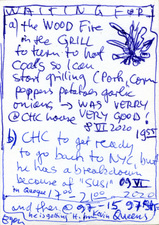 WAITING FOR
a) the WOOD Fire
in the GRILL
to turn to hot
coals so I can
start grilling (Pork, Corn
peppers potatoes garlic
onions → WAS VERRY
@ CHC house VERY GOOD!
8 VI 2020 1955
b) CHC to get ready
to go back to NYC, but
he has a breakdown
because of "SUSI" 09 VI
2020
and then @ 97-15
he is getting Queens